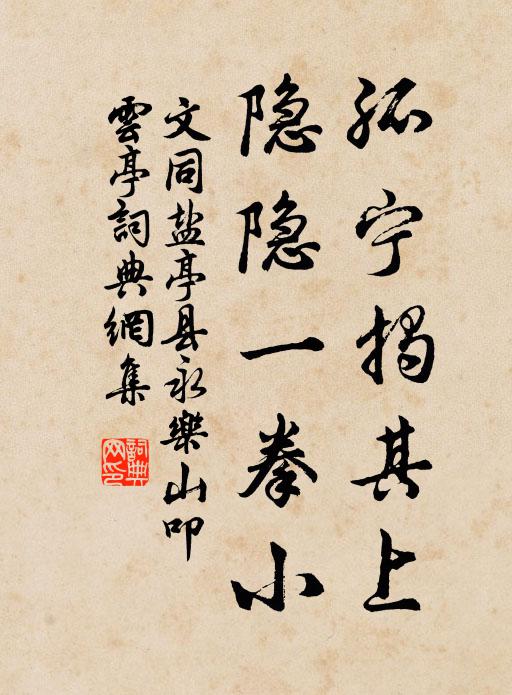 孤宁揭其上
隐隐一拳小
文同盐亭县永樂山叩
雲亭詞典網集
詞典网印